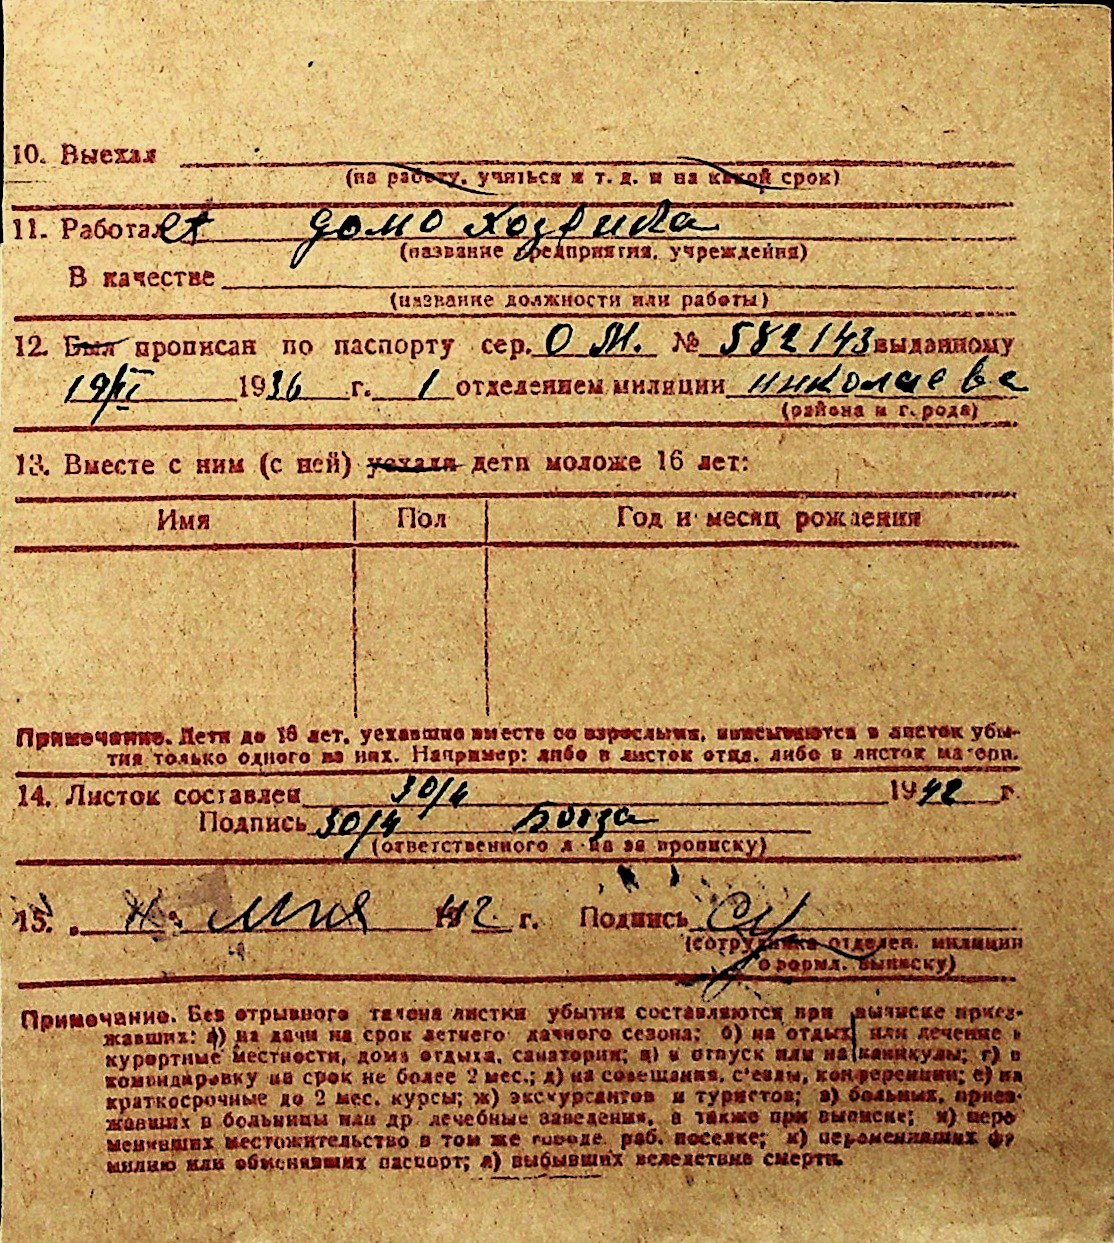 10. Выехал
(на работу, учиться и т. д. и на какой срок)
11. Работает домохозяйка
(название предприятия, учреждения)
В качестве
(название должности или работы)
12. Был прописан по паспорту сер. О М. № 582143 выданному
19/VI 1936 г. 1 отделением милиции Николаева
(района и города)
13. Вместе с ним (с ней) уехали дети моложе 16 лет:
Имя Пол Год и месяц рождения
Примечание. Дети до 16 лет, уехавшие вместе со взрослыми, вписываются в листок убы-
тия только одного из них. Например: либо в листок отца, либо в листок матери.
14. Листок составлен 30/4 1942 г.
Подпись 30/4
(ответственного л-ца за прописку)
15. " 4 " Мая 1942 г. Подпись
(сотрудника отделен. милиции
оформл. выписку)
Примечание. Без отрывного талона листки убытия составляются при выписке приез-
жавших: а) на дачи на срок летнего дачного сезона; б) на отдых или лечение в
курортные местности, дома отдыха, санатории; в) в отпуск или на каникулы; г) в
командировку на срок не более 2 мес.; д) на совещания, с'езды, конференции; е) на
краткосрочные до 2 мес. курсы; ж) экскурсантов и туристов; з) больных, приез-
жавших в больницы или др лечебные заведения, а также при выписке; и) пере
менивших местожительство в том же городе, раб. поселке; к) переменивших фа
милию или обменявших паспорт; л) выбывших вследствие смерти.